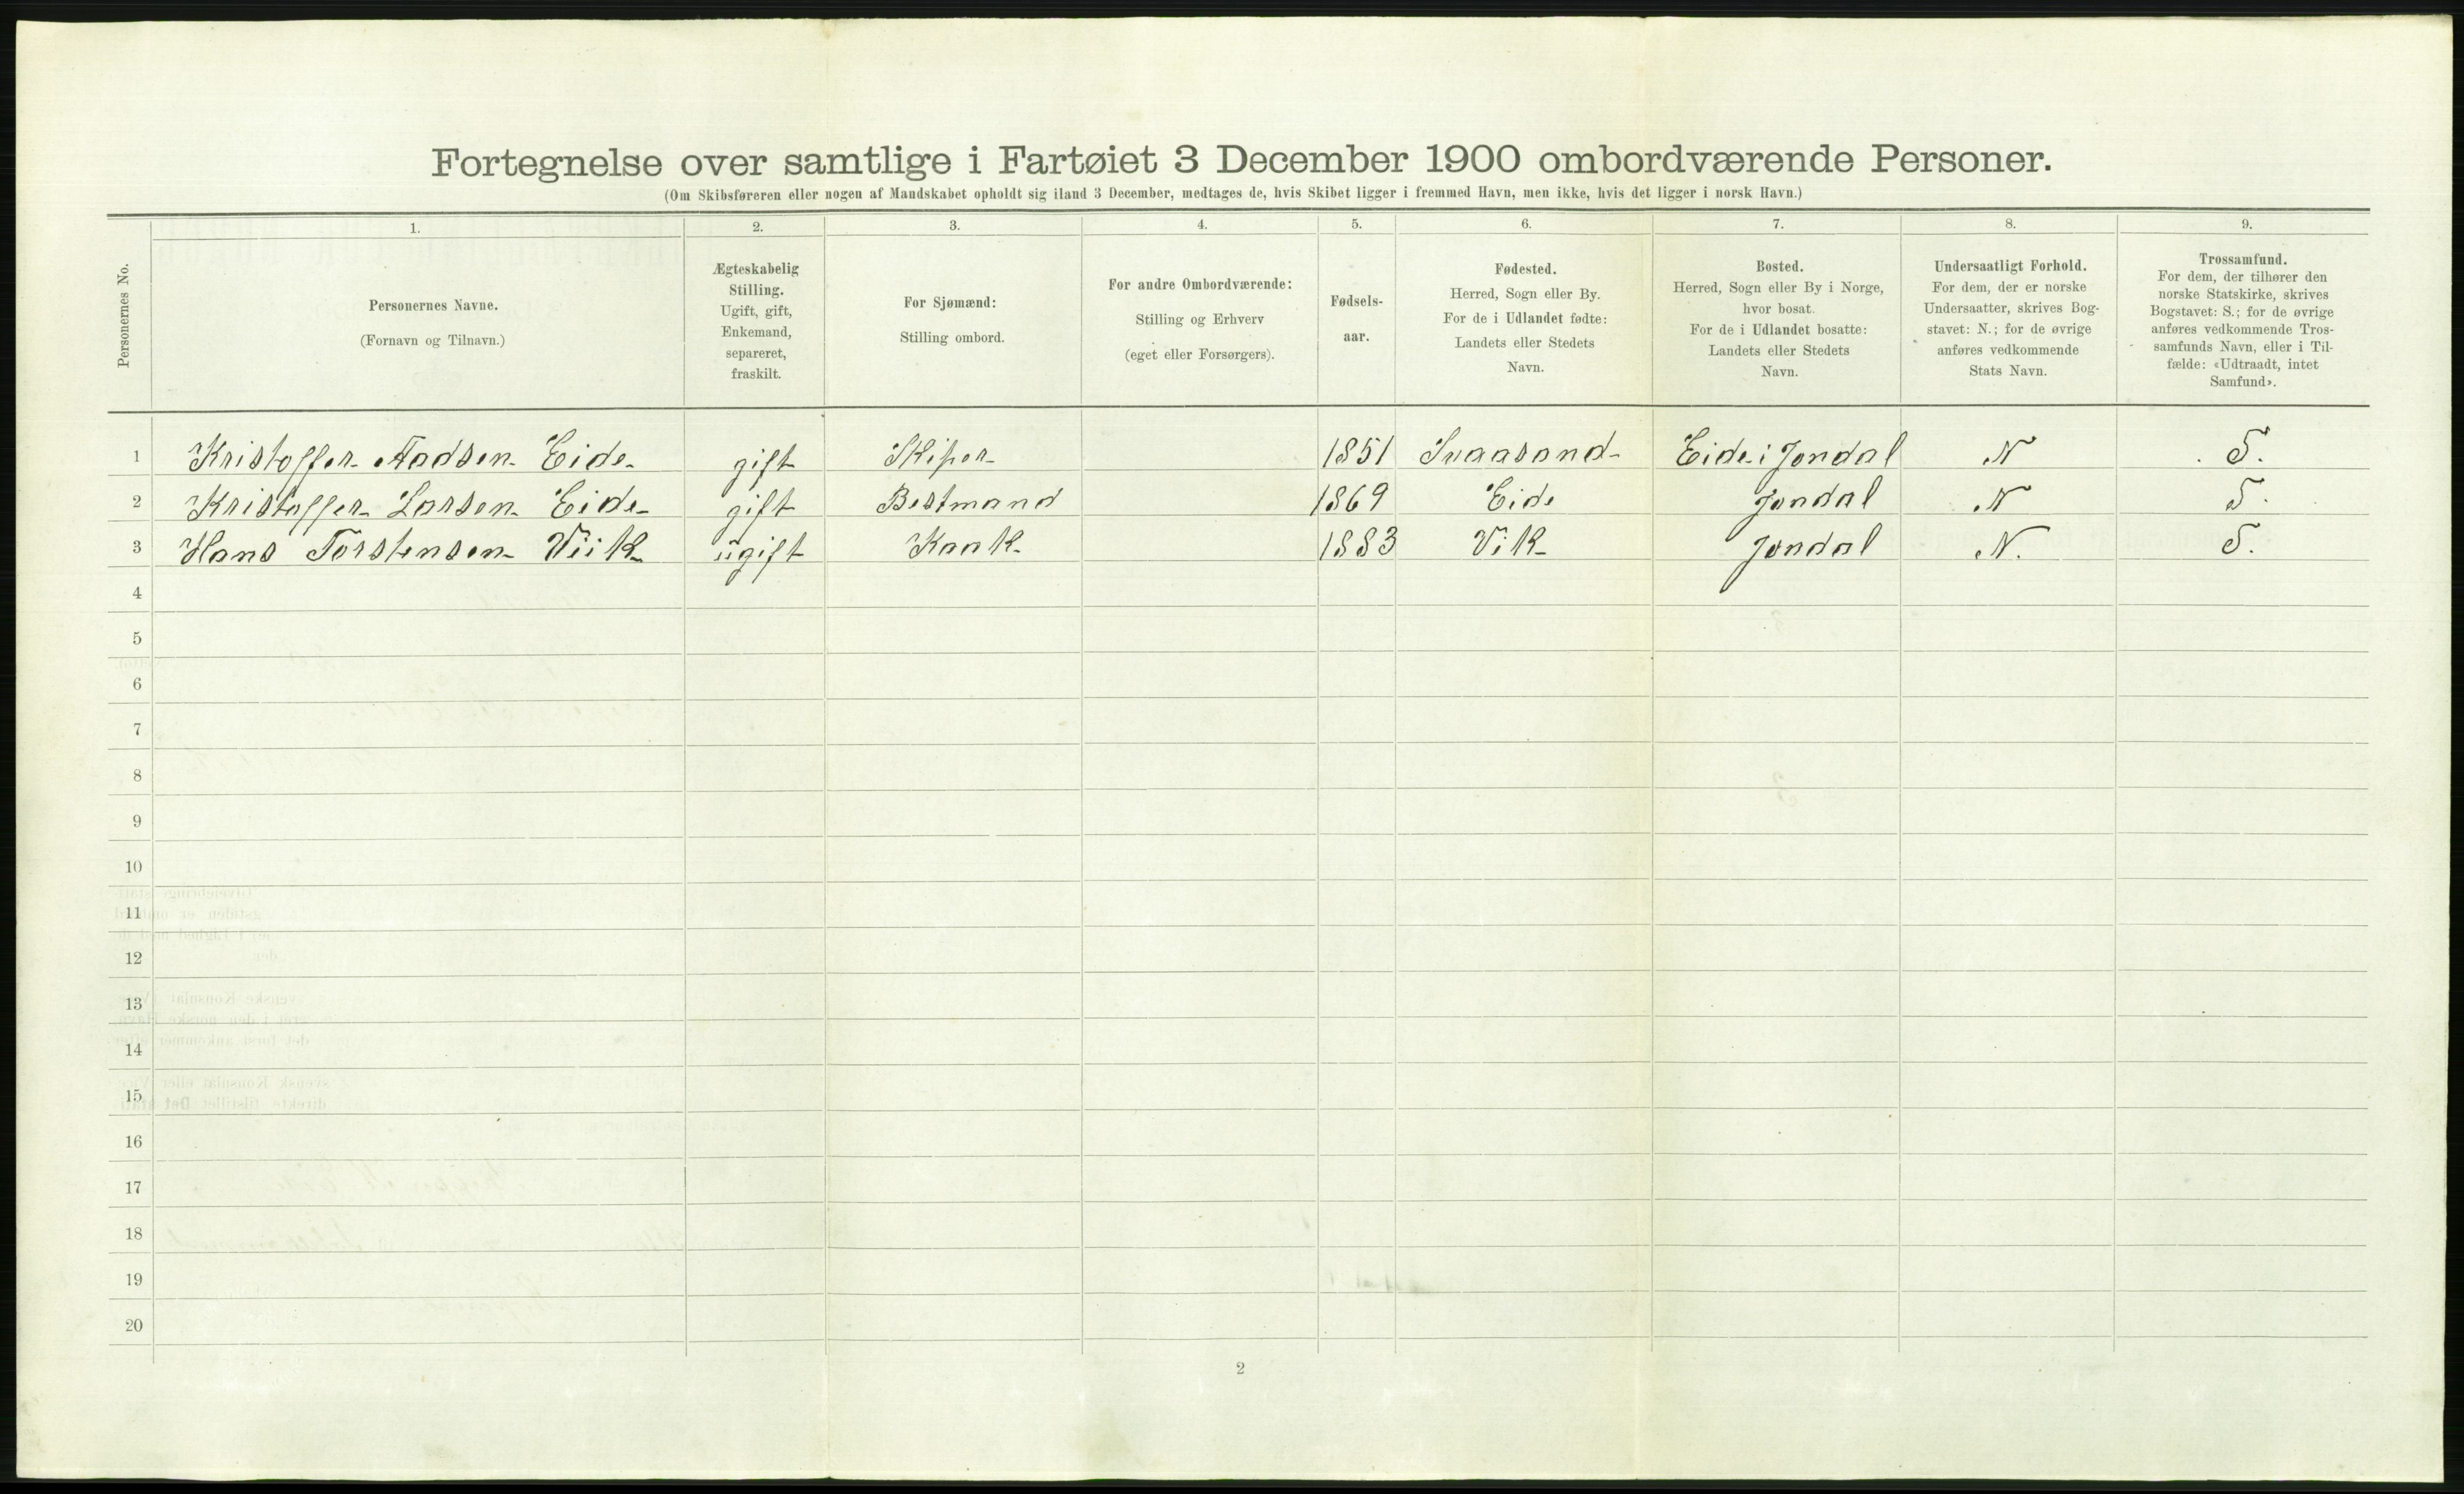 Fortegnelse over samtlige i Fartøiet 3 December 1900 ombordværende Personer.
(Om Skibsføreren eller nogen af Mandskabet opholdt sig iland 3 December, medtages de, hvis Skibet ligger i fremmed Havn, men ikke, hvis det ligger i norsk Havn.)
Personernes No.
1.
Personernes Navne.
(Fornavn og Tilnavn.)
2.
Ægteskabelig
Stilling.
Ugift, gift,
Enkemand,
separeret,
fraskilt.
3.
For Sjømænd:
Stilling ombord.
4.
For andre Ombordværende:
Stilling og Erhverv
(eget eller Forsørgers).
5.
Fødsels-
aar.
6.
Fødested.
Herred, Sogn eller By.
For de i Udlandet fødte:
Landets eller Stedets
Navn.
7.
Bosted.
Herred, Sogn eller By i Norge,
hvor bosat.
For de i Udlandet bosatte:
Landets eller Stedets
Navn.
8.
Undersaatligt Forhold.
For dem, der er norske
Undersaatter, skrives Bog-
stavet: N.; for de øvrige
anføres vedkommende
Stats Navn.
9.
Trossamfund.
For dem, der tilhører den
norske Statskirke, skrives
Bogstavet: S.; for de øvrige
anføres vedkommende Tros-
samfunds Navn, eller i Til-
fælde: «Udtraadt, intet
Samfund».
1 Kristoffer Aadsen Eide gift Skiper 1851 Svaasand Eide i Jondal N S.
2 Kristoffer Larsen Eide gift Bestmand 1869 Eide Jondal N S.
3 Hans Torstensen Viik ugift Kaak 1883 Vik Jondal N. S.
4
5
6
7
8
9
10
11
12
13
14
15
16
17
18
19
20
2